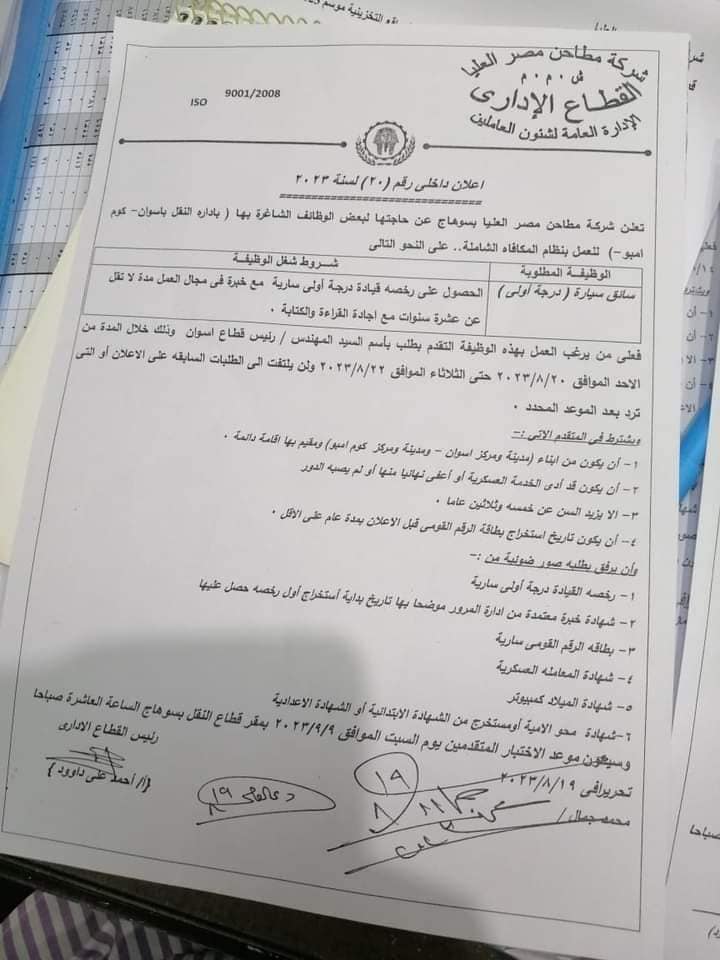 شركة مطاحن مصر العليا
ش . م . م
القطاع الإدارى
الإدارة العامة لشئون العاملين
ISO 9001/2008
اعلان داخلى رقم (٢٠) لسنة ٢٠٢٣
تعلن شركة مطاحن مصر العليا بسوهاج عن حاجتها لبعض الوظائف الشاغرة بها ( باداره النقل باسوان- كوم
امبو-) للعمل بنظام المكافاه الشاملة.. على النحو التالى
الوظيفة المطلوبة
شروط شغل الوظيفة
سائق سيارة ( درجة أولى )
الحصول على رخصه قيادة درجة أولى سارية مع خبرة فى مجال العمل مدة لا تقل
عن عشرة سنوات مع اجادة القراءة والكتابة .
فعلى من يرغب العمل بهذه الوظيفة التقدم بطلب بأسم السيد المهندس / رئيس قطاع اسوان وذلك خلال المدة من
الاحد الموافق ٢٠٢٣/٨/٢٠ حتى الثلاثاء الموافق ٢٠٢٣/٨/٢٢ ولن يلتفت الى الطلبات السابقه على الاعلان أو التى
ترد بعد الموعد المحدد .
ويشترط فى المتقدم الاتى :-
١- أن يكون من ابناء (مدينة ومركز اسوان - ومدينة ومركز كوم امبو) ومقيم بها اقامة دائمة .
٢- أن يكون قد أدى الخدمة العسكرية أو أعفى نهائيا منها أو لم يصبه الدور
٣- الا يزيد السن عن خمسه وثلاثين عاما .
٤- أن يكون تاريخ استخراج بطاقة الرقم القومى قبل الاعلان بمدة عام على الأقل .
وأن يرفق بطلبه صور ضوئية من :-
١- رخصه القيادة درجة أولى سارية
٢- شهادة خبرة معتمدة من ادارة المرور موضحا بها تاريخ بداية أستخراج أول رخصه حصل عليها
٣- بطاقه الرقم القومى سارية
٤- شهادة المعامله العسكرية
٥- شهادة الميلاد كمبيوتر
٦- شهادة محو الامية أومستخرج من الشهادة الابتدائية أو الشهادة الاعدادية
وسيكون موعد الاختبار المتقدمين يوم السبت الموافق ٢٠٢٣/٩/٩ بمقر قطاع النقل بسوهاج الساعة العاشرة صباحا
تحريرافى ٢٠٢٣/٨/١٩
رئيس القطاع الادارى
محمد جمال /
(أ/ أحمد على داوود )
١٩
٨
١٩
٨